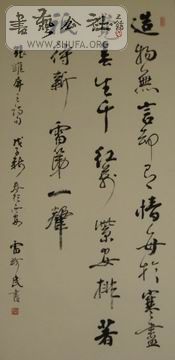 造物無言却有情每於寒盡
覺春生千紅萬紫安排著
只待新雷第一聲
張維屏之詩 戊子新春 民書
WWW.SHUFA.ORG